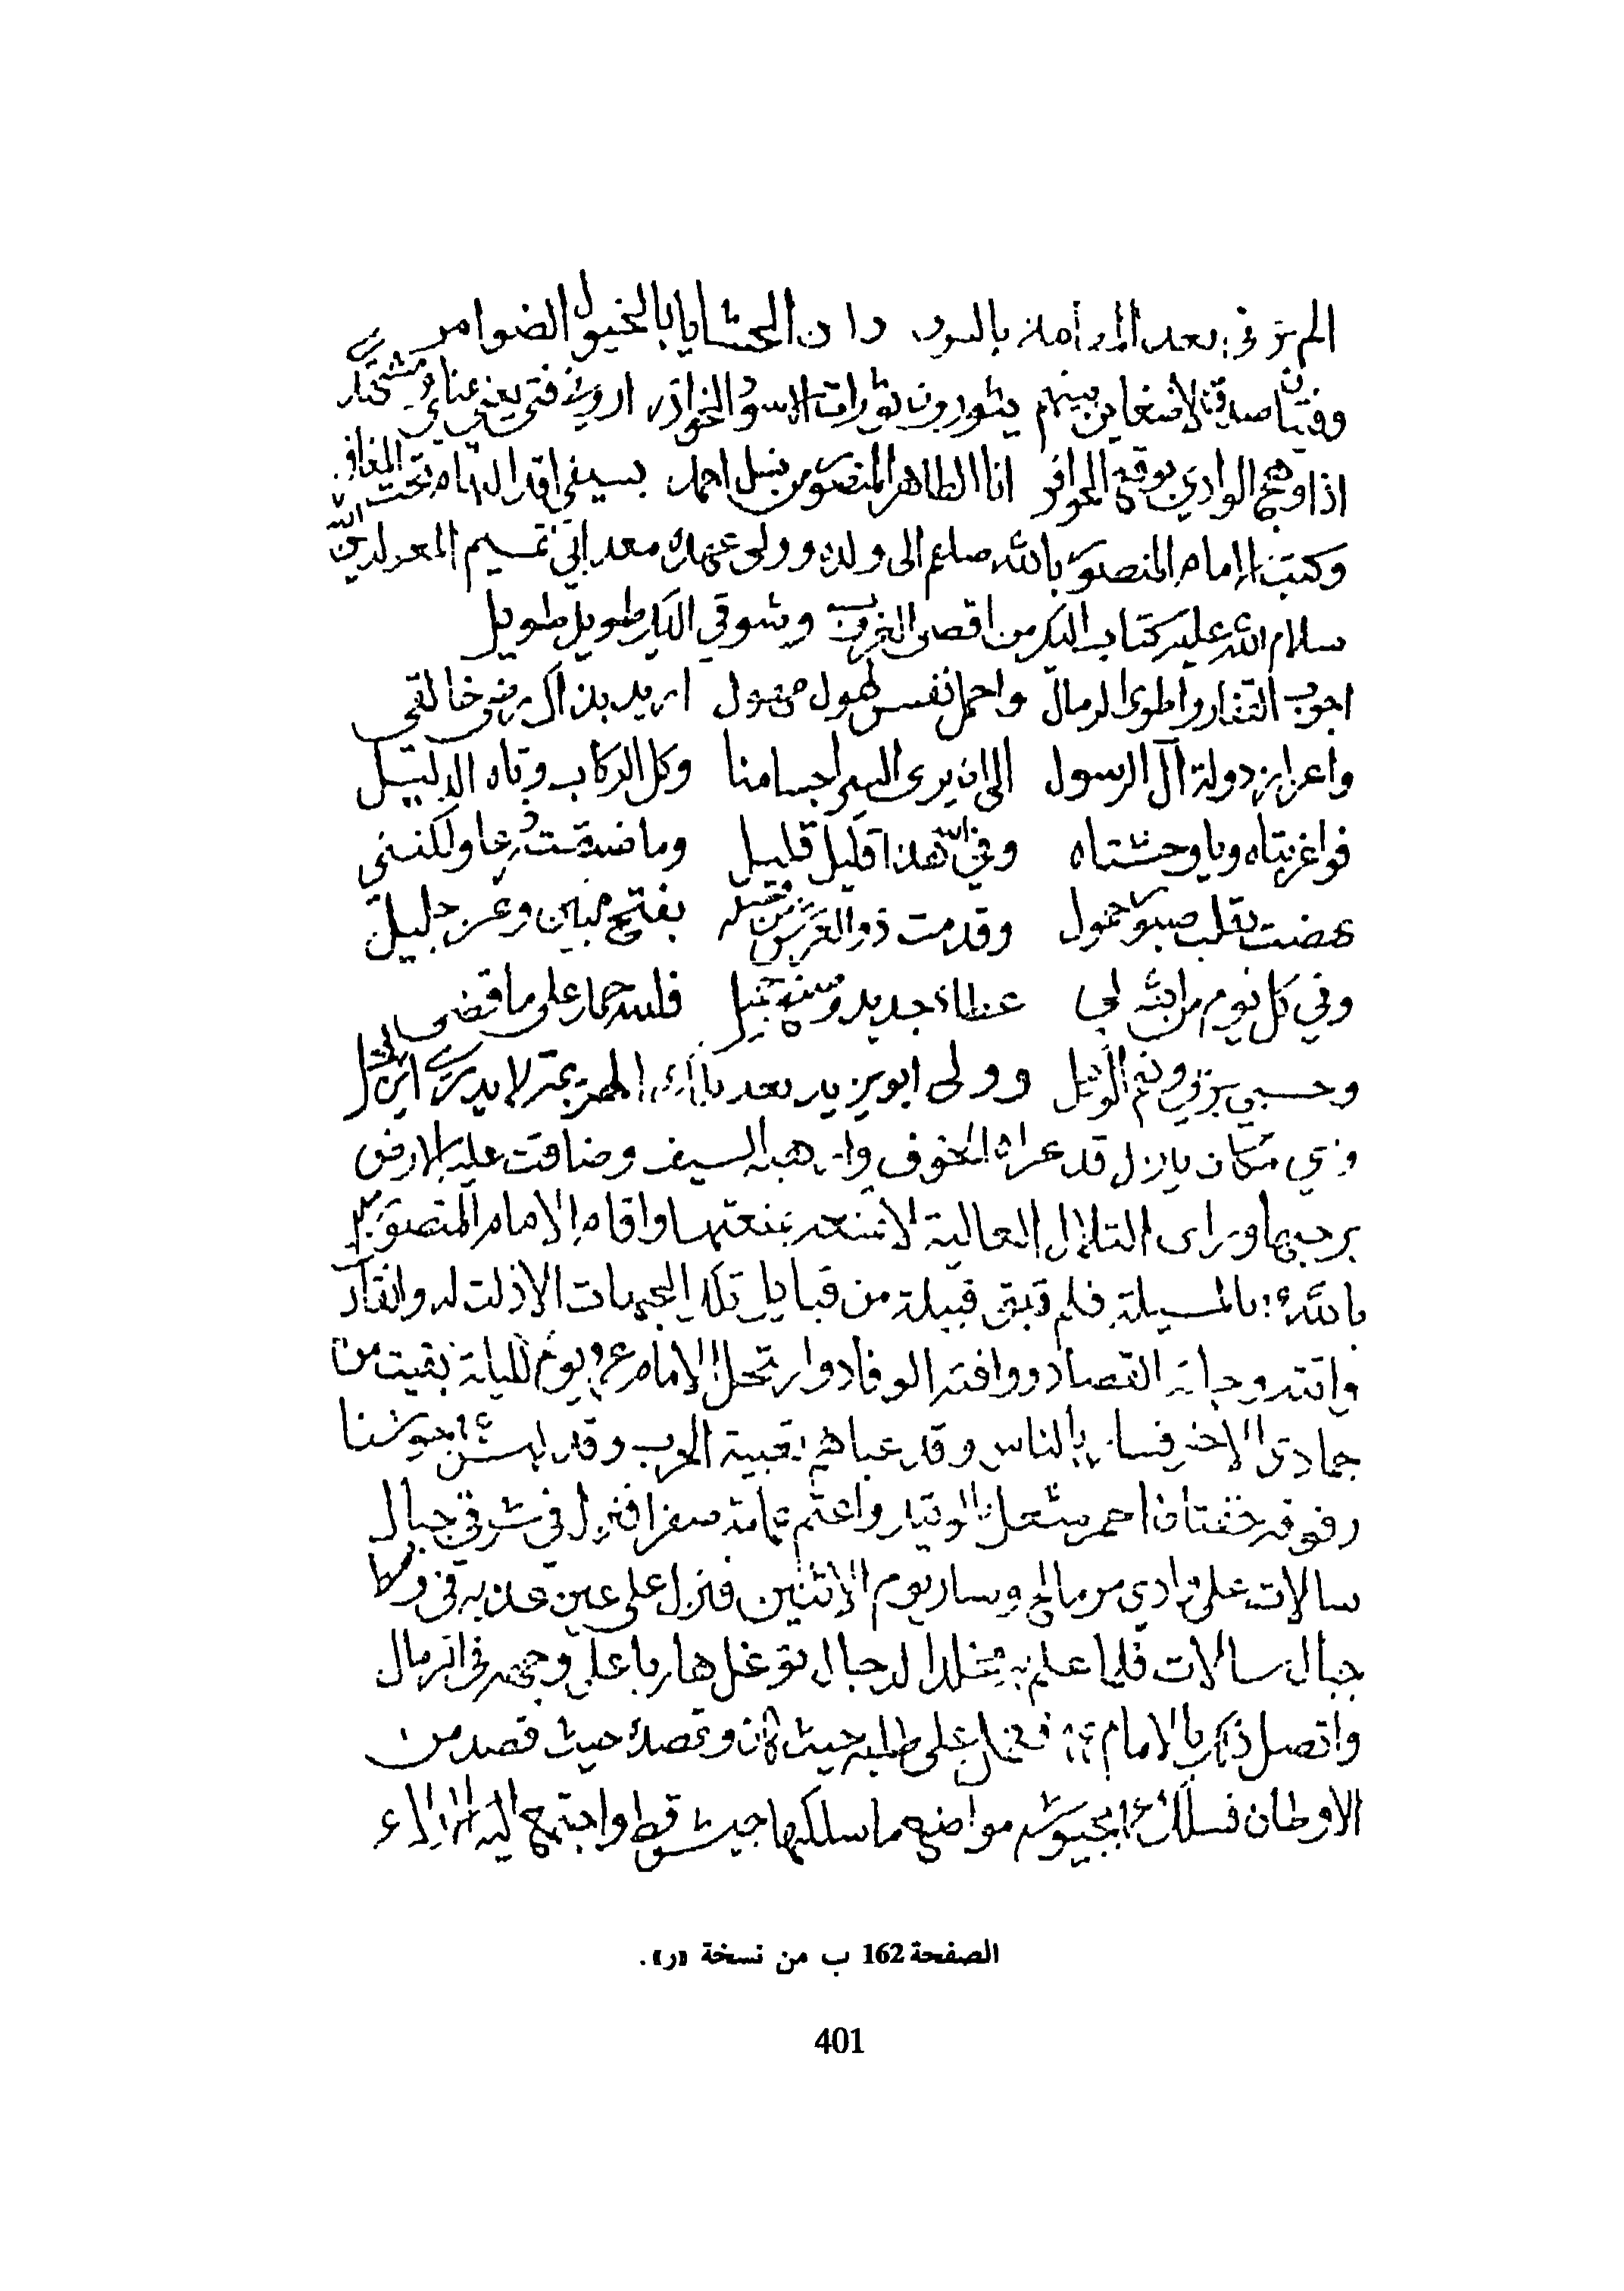 الم ترني بعد بالسرى دا ن الحشايا بالخيول الضوامر
وفتيان صدق لاضغاين بينهم يثورون ثورات الاسود الخوادر اروني فتى يغني عناي ومشهدي
اذا وهج الوادي بوقع الحوافر انا الطاهر المنصور من نسل احمد بسيفي اقد الهام تحت المغافر
وكتب الامام المنصور بالله صلعم الى ولده وولي عهده معد ابي تميم المعز لدين الله
سلام الله عليك كتاب اليك من اقصى الغرب وشوقي اليك طويل طويل
اجوب القفار واطوي الرمال واحمل نفسي لهول مهول اريد بذاك رضى خالقي
واعزاز دولة آل الرسول الى ان برى السير اجسامنا وكل الركاب وتاه الدليل
فواغربتاه وياوحشتاه وفي الله هذا قليل قليل وما ضقت ذرعا ولكنني
نهضت بقلب صبور حمول وقد من ذو العرش من فضله بفتح مبين وعز جليل
وفي كل يوم من الله لي عطاء جديد وصنع جميل فلله حمد على ما قضى
وحسبي بربي ونعم الوكيل وولى ابو يزيد بعد الهزيمة لا يدري اين
وفي مكان ينزل قد عراه الخوف السيف وضاقت عليه الارض
برحبها وراى التلال العالية لا تمنعه بمنعتها واقام الامام المنصور
بالله بالمسيلة فلم تبق قبيلة من قبايل تلك الجهات الا ذلت له وانقاد
واتته وجاته القصاد ووافته الوفاد وارتحل الامام ع م يوم لليلة بقيت من
جمادى الاخر فسار بالناس وقد عباهم تعبية الحرب وقد لبس جوشنا
وفوقه خفتانا احمر واعتم عمامة صفرا فنزل في شرقي جبال
سالات على وادي مر مالح وسار يوم الاثنين فنزل على عين عذبة في وسط
جبال سالات فلما علم به مخلد الدجال توغل هاربا على وجهه في الرمال
واتصل ذكره بالامام ع م على طلبه حيث كان وقصده حيث قصد من
الاوطان فسلك ع م بجيوشه مواضع ما سلكها جيش قط واجتمع اليه
الصفحة 162 ب من نسخة «ر».
401